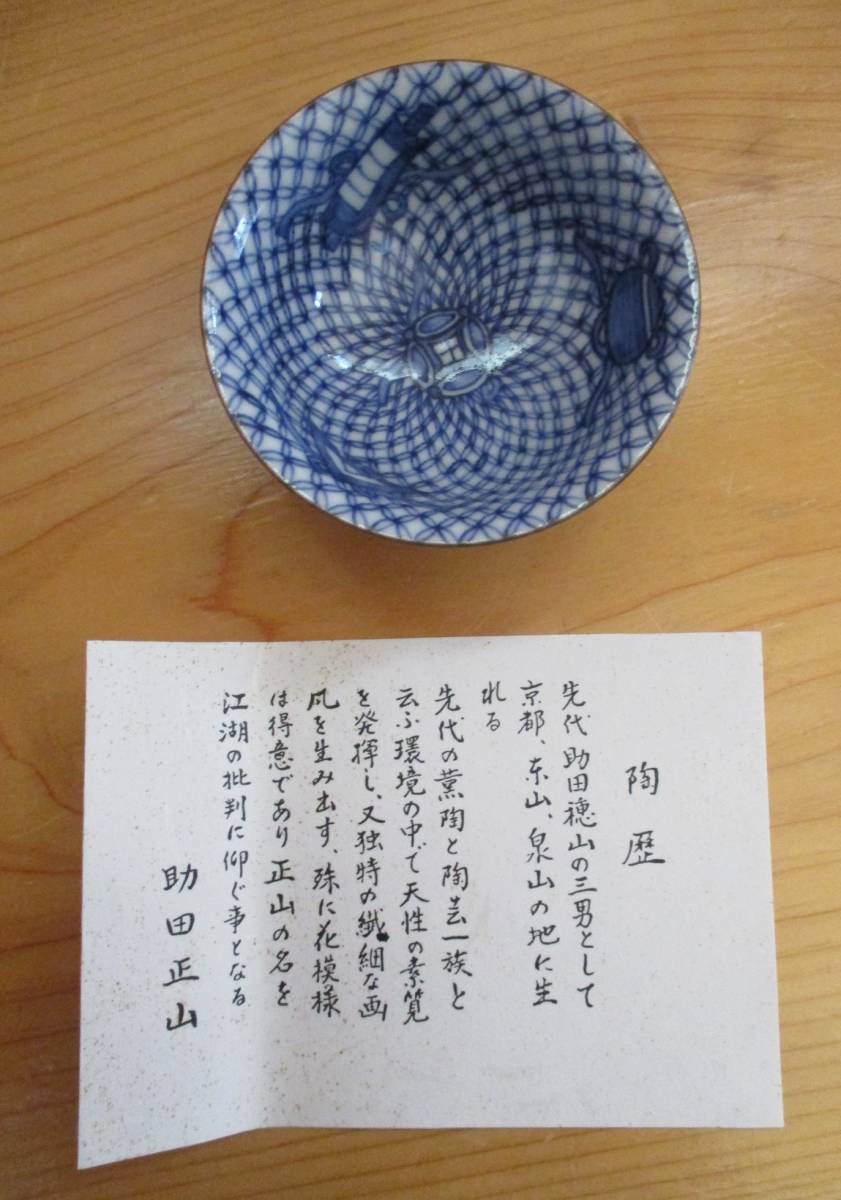 陶歴
先代助田穂山の三男として
京都、東山、泉山の地に生
れる
先代の薫陶と陶芸一族と
云ふ環境の中で天性の素質
を発揮し、又独特の繊細な画
風を生み出す、殊に花模様
は得意であり正山の名を
江湖の批判に仰ぐ事となる
助田正山